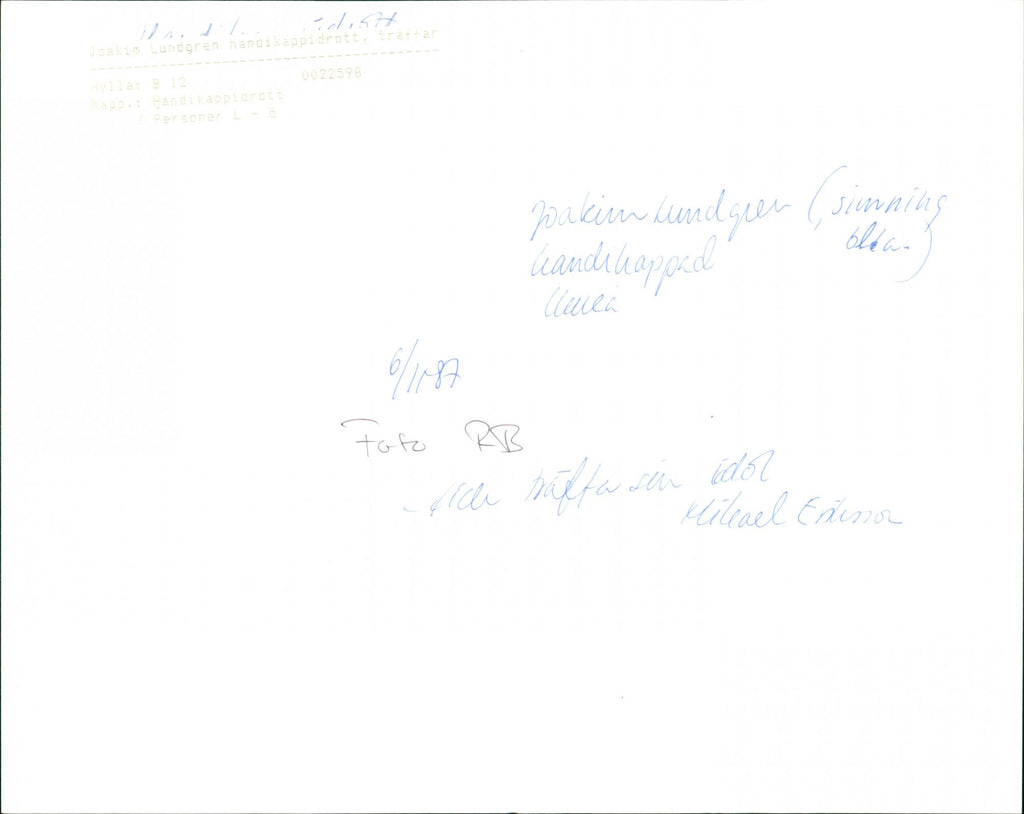 Handikappidrott
Joakim Lundgren handikappidrott, träffar
Hylla: B 12 0022598
Mapp.: Handikappidrott
/ Personer L - Ö
Joakim Lundgren (simning
handikappad bl.a.)
Umeå
6/11-87
Foto RB
träffa sin idol
Mikael Eriksson